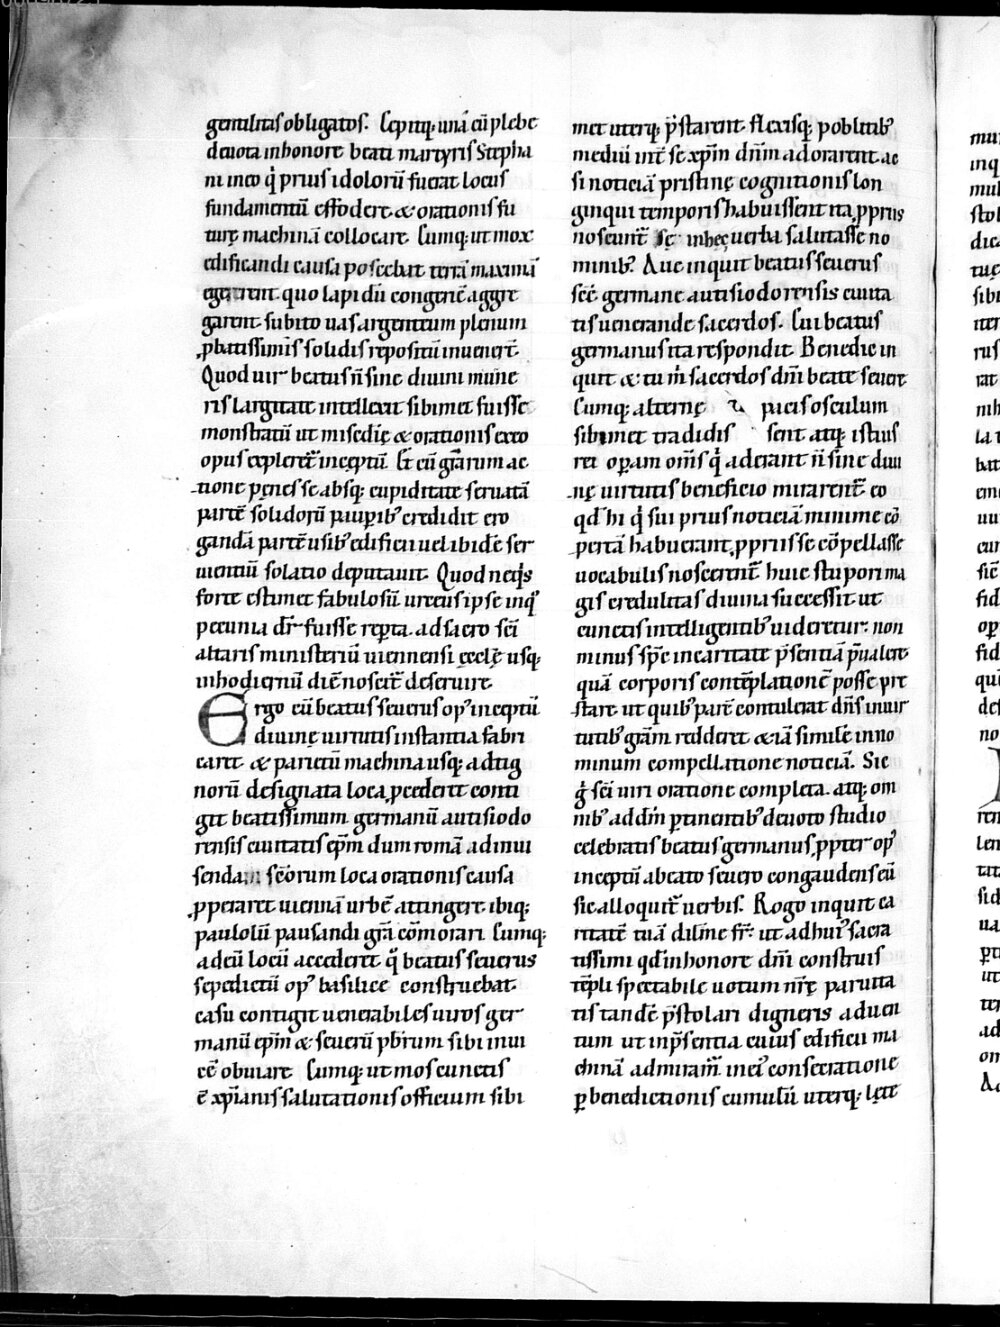 gentilitas obligatos. Cepitq; unā cū plebe
deuota in honore beati martyris Stepha
ni in eo q̇ prius idolorū fuerat locus
fundamentū effodere & orationis fu
turę machinā collocare. Cumq; ut mox
edificandi causa poscebat terrā maximā
egererent. quo lapidū congeriē aggre
garent. subito uas argenteum plenum
ꝓbatissimis solidis repositū inuener̄t.
Quod uir beatus n̄ sine diuini mune
ris largitate intellexit sibimet fuisse
monstratū ut misedię & orationis cęto
opus expleret̄ inceptū. Et cū gr̄arum ac
tione penes se absq; cupiditate seruatā
partē solidorū pauꝑibꝰ credidit ero
gandā partē usibꝰ edificii uel ibidē ser
uientiū solatio deputauit. Quod neq̇s
forte estimet fabulosū urceus ipse in q̊
pecunia dr̄ fuisse reꝑta. ad sacro sc̄i
altaris ministeriū uiennensi ęcclę usq;
in hodiernū diē noscit̄ deseruire.
Ergo cū beatus seuerus opꝰ inceptū
diuinę uirtutis instantia fabri
caret. & parietū machina usq; ad tig
norū designata loca ꝓcederet. conti
git beatissimum germanū autisiodo
rensis ciuitatis ep̄m dum romā ad inui
senda sc̄orum loca orationis causa
ꝓperaret uiennā urbē attingere. ibiq;
paulolū pausandi gr̄a cōmorari. Cumq;
ad eū locū accederet. q̊ beatus seuerus
sepedictū opꝰ basilicę construebat.
casu contigit uenerabiles uiros ger
manū ep̄m & seuerū pb̄rum sibi inui
cē obuiare. Cumq; ut mos cunctis
ē xp̄ianis salutationis officium sibi
met uterq; p̄starent. flexisq; poblitibꝰ
mediū int̄ se xp̄m dn̄m adorarent. ac
si noticiā pristinę cognitionis lon
ginqui temporis habuissent ita ꝓpriis
noscunt̄ sę in hęc uerba salutasse no
minibꝰ. Aue inquit beatus seuerus
sc̄ē germane autisiodorensis ciuita
tis uenerande sacerdos. Cui beatus
germanus ita respondit. Benedic in
quit & tu m̄ sacerdos dn̄i beate seuere
Cumq; alternę pacis osculum
sibimet tradidissent atq; istius
rei oꝑam om̄s q̇ aderant n̄ sine diui
nę uirtutis beneficio mirarent̄. eo
qd̄ hi q̇ sui prius noticiā minime cō
pertā habuerant. ꝓpriis se cōpellasse
uocabulis noscerent̄. huic stupori ma
gis credulitas diuina successit. ut
cunctis intelligentibꝰ uideretur. non
minus sp̄c in caritate p̄sentiā p̄ualere.
quā corporis contēplationē posse pre
stare. ut quibꝰ parē contulerat dn̄s in uir
tutibꝰ gr̄am redderet. & iā similē in no
minum compellatione noticiā. Sic
g̊ sc̄i uiri oratione completa. atq; om
nibꝰ ad dm̄ ꝑtinentibꝰ deuoto studio
celebratis beatus germanus ꝓpter opꝰ
inceptū a beato seuero congaudens eū
sic alloquit̄ uerbis. Rogo inquit ca
ritatē tuā dilm̄e fr̄. ut ad huiꝰ sacra
tissimi qd̄ in honore dm̄i construis
tēpli spectabile uotum nr̄ę paruita
tis tandē p̄stolari digneris aduen
tum. ut in p̄sentia cuius edificii ma
chinā admiram̄. in eiꝰ consecratione
ꝑ benedictionis cumulū uterq; lęte